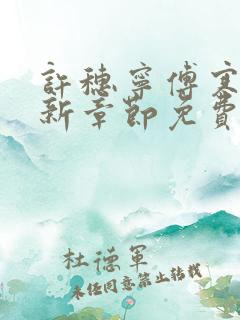 許穗寧傅寒
新章節免費
杜德軍
未經同意禁止轉載